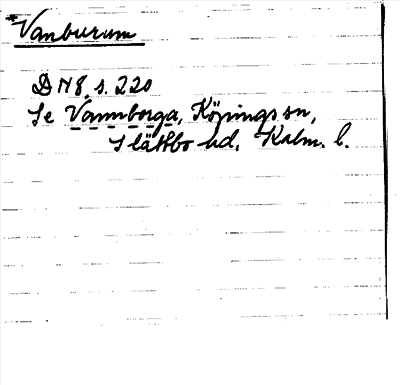 *Vanburum
DN 8, s. 220
Se Vannborga, Köpings sn,
Slättbo hd, Kalm. l.